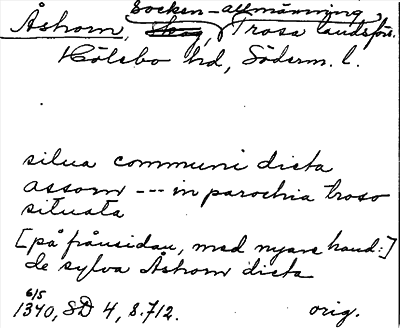 Socken-allmänning,
Åshorn, Skog, Trosa landsförs.
Hölebo hd, Söderm. l.
silua communi dicta
assorn --- in parochia troso
situata
[på frånsidan, med nyare hand:]
de sylva Åshorn dicta
6/5
1340, SD 4, s. 712. orig.